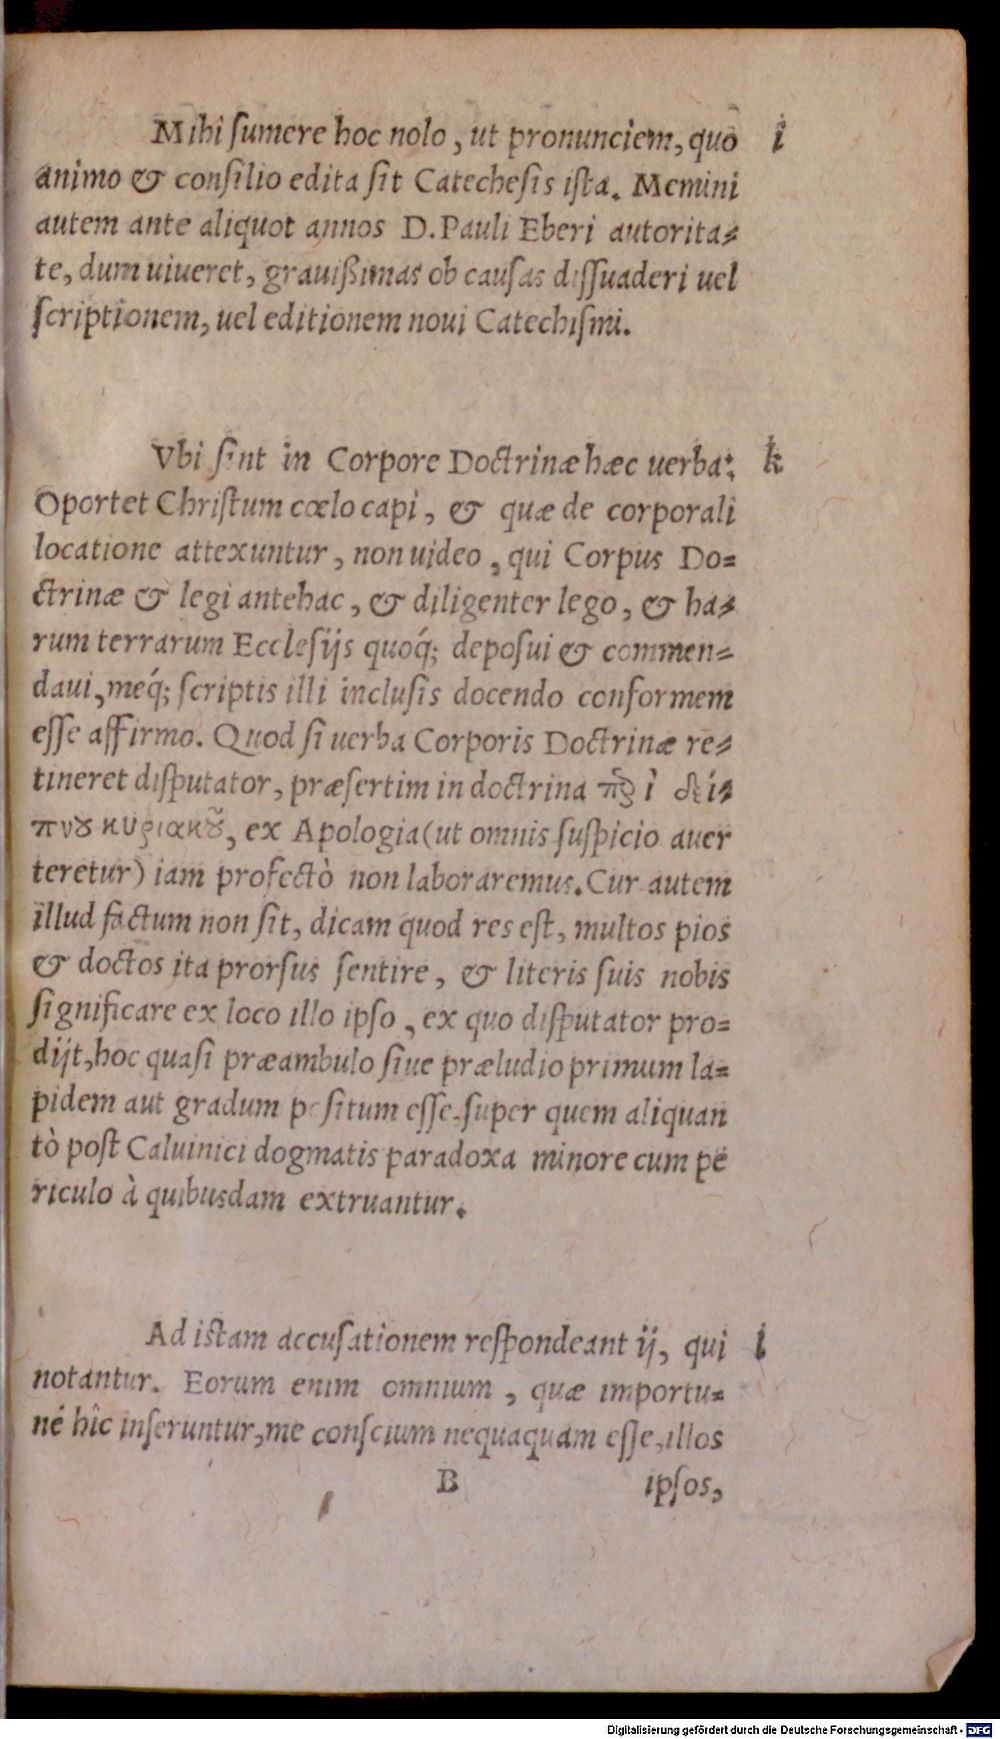 Mihi ſumere hoc nolo, ut pronunciem, quo i
animo & conſilio edita ſit Catecheſis iſta. Memini
autem ante aliquot annos D. Pauli Eberi autorita-
te, dum uiueret, grauißimas ob cauſas diſſuaderi uel
ſcriptionem, uel editionem noui Catechiſmi.
Vbi ſint in Corpore Doctrinæ hæc uerba: k
Oportet Chriſtum cœlo capi, & quæ de corporali
locatione attexuntur, non uideo, qui Corpus Do=
ctrinæ & legi antehac, & diligenter lego, & ha-
rum terrarum Eccleſijs quoq́; depoſui & commen-
daui, meq́; ſcriptis illi incluſis docendo conformem
eſſe affirmo. Quod ſi uerba Corporis Doctrinæ re-
tineret diſputator, præſertim in doctrina πϵρὶ δεί-
πνου κυριακοῦ, ex Apologia (ut omnis ſuſpicio auer
teretur) iam profectò non laboraremus. Cur autem
illud factum non ſit, dicam quod res eſt, multos pios
& doctos ita prorſus ſentire, & literis ſuis nobis
ſignificare ex loco illo ipſo, ex quo diſputator pro=
dijt, hoc quaſi præambulo ſiue præludio primum la=
pidem aut gradum poſitum eſſe, ſuper quem aliquan
tò poſt Caluinici dogmatis paradoxa minore cum pe
riculo à quibusdam extruantur.
Ad iſtam accuſationem reſpondeant ij, qui l
notantur. Eorum enim omnium, quæ importu=
né hîc inſeruntur, me conſcium nequaquam eſſe, illos
B ipſos,
Digitalisierung gefördert durch die Deutsche Forschungsgemeinschaft - DFG